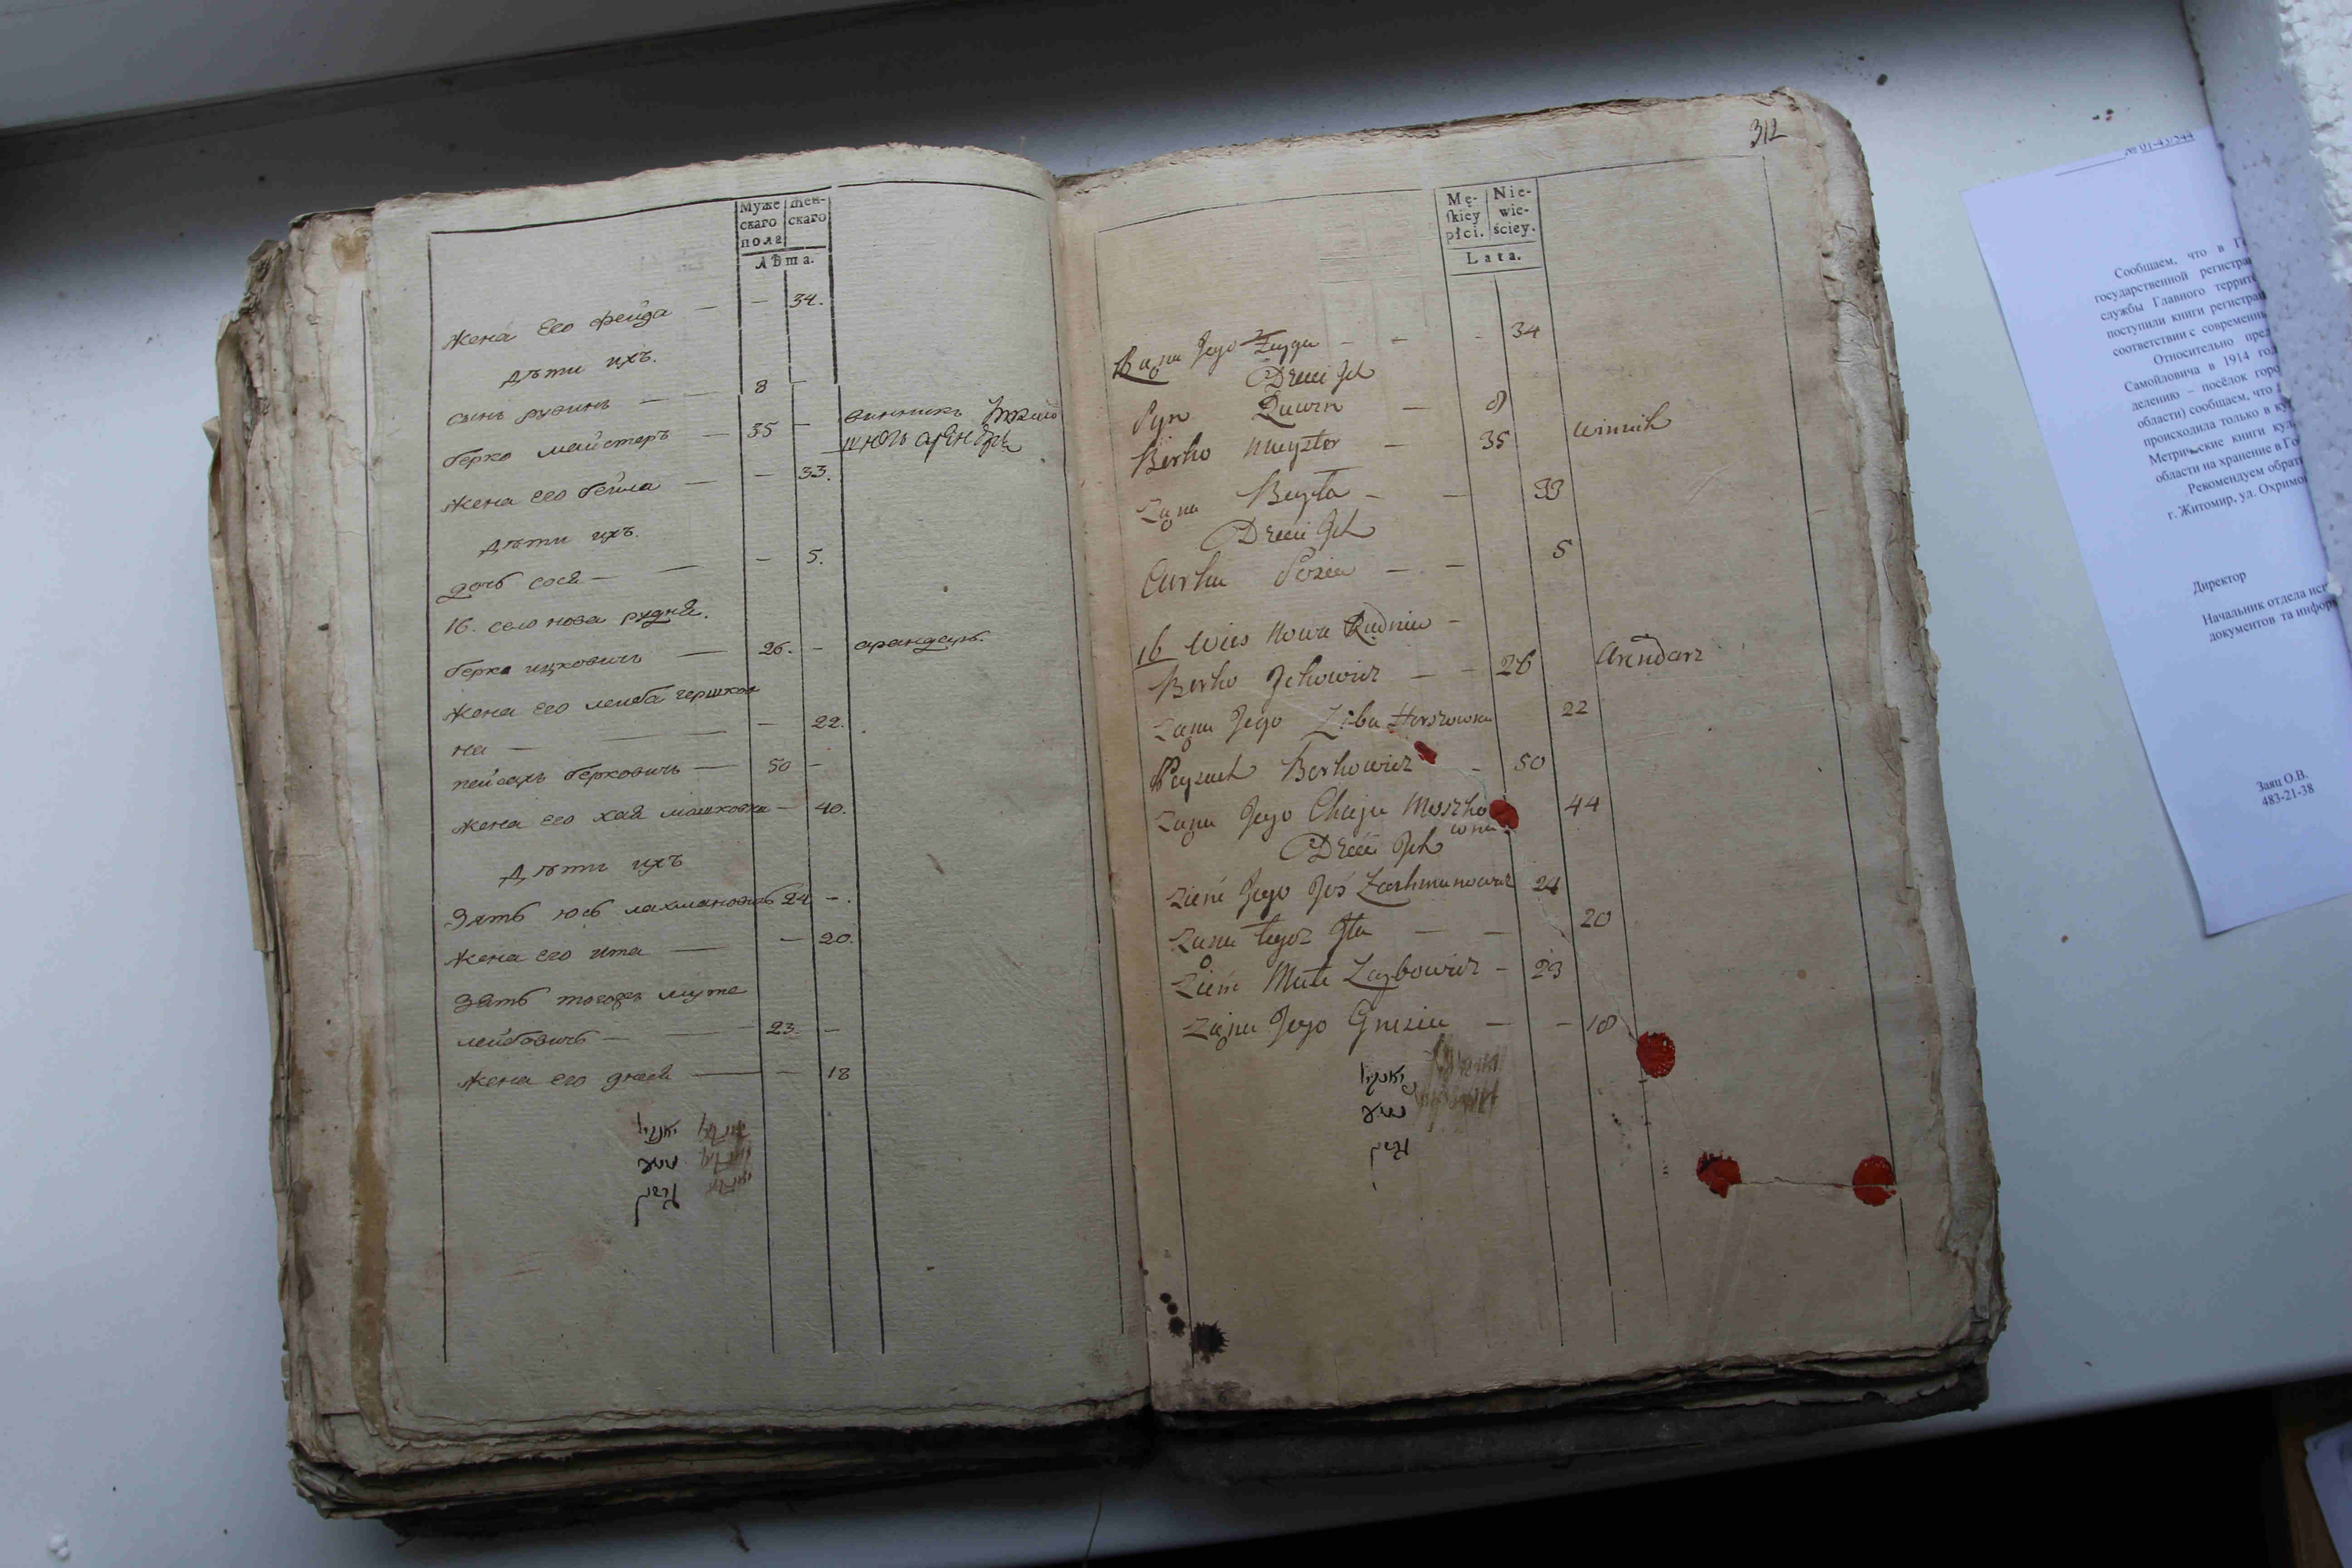 Муже
скаго
пола
Жен-
скаго
Лѣта.
Жена Его Фейга — — 34.
дѣти ихъ.
сынъ рувинъ — — 8 —
берко майстеръ — 35 — винникъ
жена его бейла — — 33.
дѣти ихъ.
дочь сося — — — 5.
16. село нова рудня.
берко ицковичъ — 26. — арандаръ.
жена его лейба гершков
на — — — 22.
пейсахъ берковичъ — 50 —
жена его хая мошковна — 40.
дѣти ихъ
Зять юсь лахмановичъ 24 —.
жена его ита — — 20.
зять тогожъ муте
лейбовичъ — — 23. —
жена его гнеся — — 18
312
Mę-
skiey
płci.
Nie-
wie-
ściey.
Lata.
Żona Jego Feyga - - - 34
Dzieci Ich
Syn Ruwin — 8
Berko Mayster — 35 winnik
Żona Beyła — — 33
Dzieci Ich
Curka Sosia — — 5
16 Wies Nowa Rudnia —
Berko Ickowicz — — 26 Arendarz
Żona Jego Liba Herszkowna 22
Peysach Berkowicz - 50
Żona Jego Chaja Moszko 44
wna
Dzieci Ich
Zięć Jego Joś Lachmanowicz 24
Żona tegoż Ita — — 20
Zięć Mute Leybowicz — 23
Żona Jego Gnesia — — 18
№ 01-43/544
Сообщаем, что в
государственной
службы Главного
поступили книги
соответствии с
Относительно
Самойловича в 1914
делению – посёлок
области) сообщаем, что
происходила только в
Метрические книги
области на хранение в
Рекомендуем
г. Житомир, ул.
Директор
Начальник отдела
документов та
Заяц О.В.
483-21-38